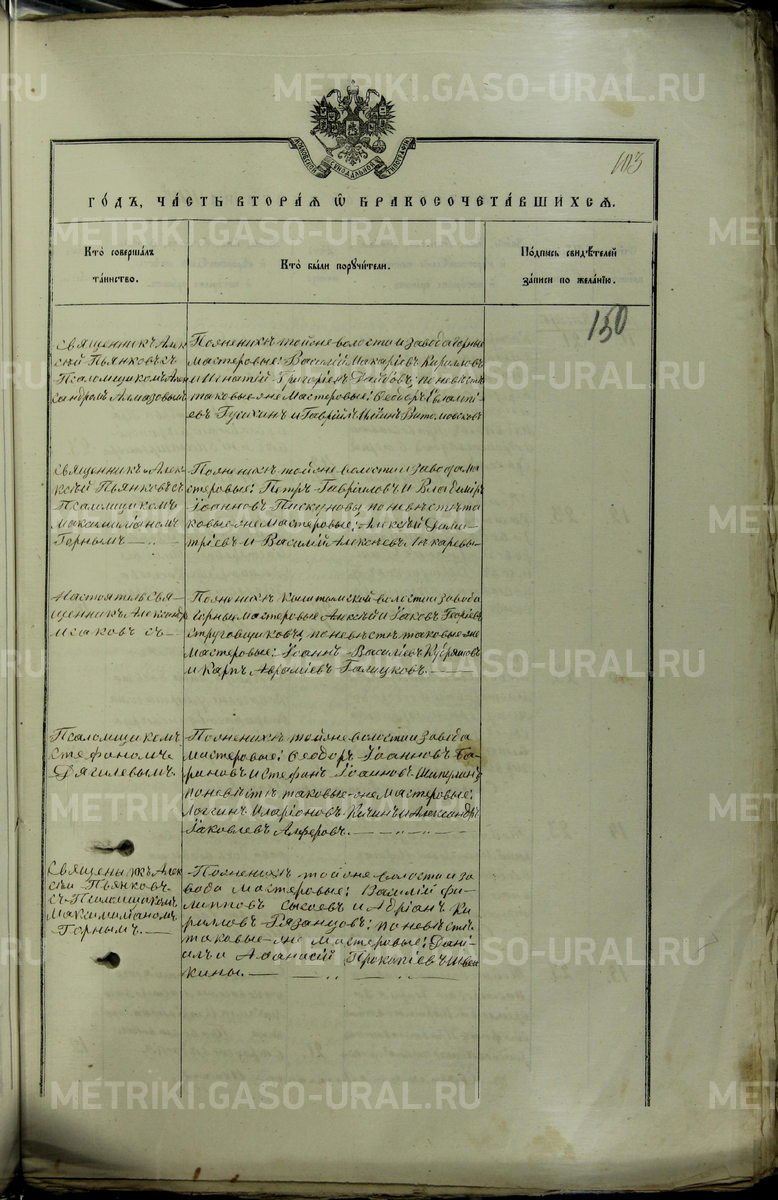 METRIKI.GASO-URAL.RU
МОСКОВСКОЙ СѴНОДАЛЬНОЙ ТИПОГРАФІИ
103
ГО́ДЪ, ЧА́СТЬ ВТОРА́Я Ѡ҆ БРАКОСОЧЕТА́ВШИХСЯ.
Кто̀ соверша́лъ
та́инство.
Кто̀ бы́ли порꙋчи́тели.
По́дпись свидѣ́телей
за́писи по жела́нїю.
150
Священникъ Алек-
сѣй Пьянковъ съ
Псаломщикомъ Алек-
сандромъ Алмазовымъ
По женихѣ той же волости и завода горные
мастеровые: Василій Макаріевъ Кирилловъ
и Игнатій Григоріевъ; по невѣстѣ
таковые же мастеровые: Ѳеодоръ Евлампі-
евъ и Гавріилъ
Священникъ Алек-
сѣй Пьянковъ съ
Псаломщикомъ
Максимиліаномъ
Горнымъ
По женихѣ той же волости и завода ма-
стеровые: Петръ Гавріиловъ и Владиміръ
Іоанновъ Пискуновы; по невѣстѣ та
ковые же мастеровые: Алексѣй Дими-
тріевъ и Василій Алексѣевъ
Настоятель Свя-
щенникъ Александръ
Исаковъ съ
По женихѣ Кыштымской волости и завода
горные мастеровые Алексѣй и Іаковъ Георгіевы
Струговщиковы; по невѣстѣ таковые же
мастеровые: Іоаннъ Васильевъ
и Карпъ Авраміевъ Галицковъ.
Псаломщикомъ
Стефаномъ
Дягилевымъ.
По женихѣ той же волости и завода
мастеровые: Ѳеодоръ Іоанновъ Ба-
риновъ и Стефанъ Іоанновъ
по невѣстѣ таковые же мастеровые:
Логгинъ Иларіоновъ и Александръ
Іаковлевъ Алферовъ.
Священникъ Алек
сѣй Пьянковъ
съ Псаломщикомъ
Максимиліаномъ
Горнымъ.
По женихѣ той же волости и за
вода мастеровые: Василій Фи-
липповъ Сысоевъ и Адріанъ Ки
рилловъ Рязанцовъ; по невѣстѣ
таковые же мастеровые: Дані-
илъ и Аѳанасій Прокопіевы Швей
кины.